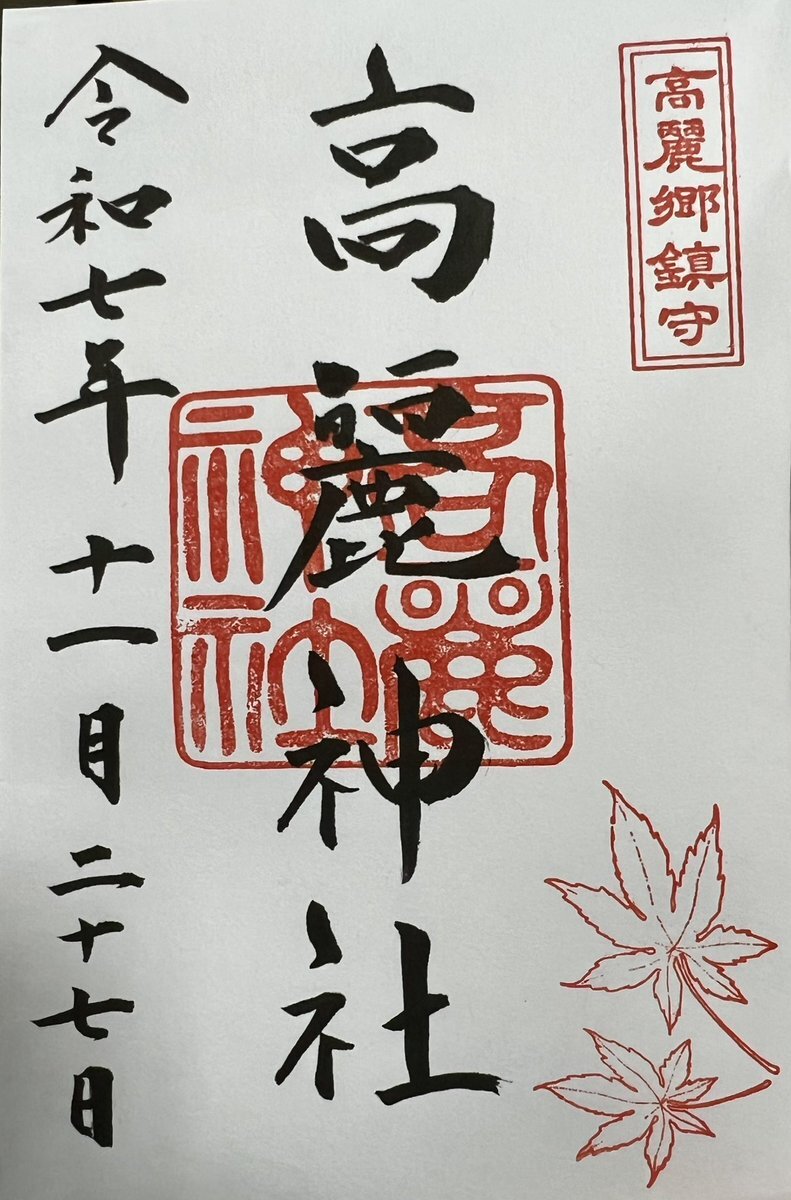 高麗郷鎮守
高麗神社
高麗神社
令和七年十一月二十七日